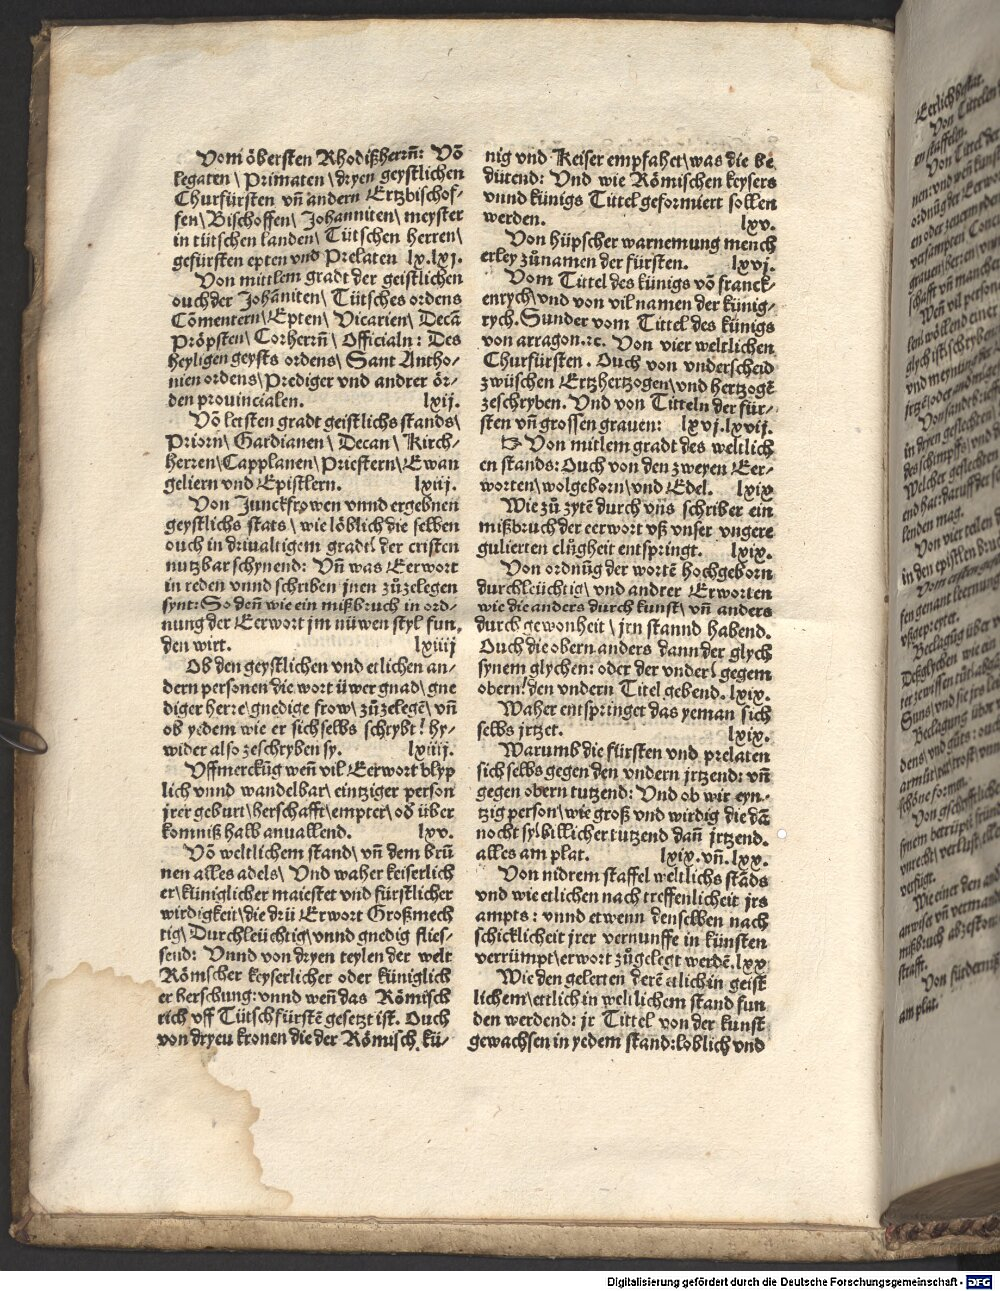 Vom öbersten Rhodißherrn̄: Vō
legaten\ Primaten\ dryen geystlichen
Churfürsten vn̄ andern Ertzbischof-
fen\ Bischoffen\ Johanniten\ meyster
in tütschen landen\ Tütschen herren\
gefürsten epten vnd Prelaten lx.lxj.
Von mittlem gradt der geistlichen
ouch der Johāniten\ Tütsches ordens
Cōmentern\ Epten\ Vicarien\ Decā
Pröpsten\ Corherrn̄\ Officialn: Des
heyligen geysts ordens\ Sant Antho-
nien ordens\ Prediger vnd andrer ör-
den prouincialen. lxij.
Vō letsten gradt geistlichs stands\
Priorn\ Gardianen\ Decan\ Kirch-
herren\ Capplanen\ Priestern\ Ewan
geliern vnd Epistlern. lxiij.
Von Junckfrowen vnnd ergebnen
geystlichs stats\ wie löblich die selben
ouch in driualtigem gradt\ der cristen
nutzbar schynend: Vn̄ was Eerwort
in reden vnnd schriben jnen zůzelegen
synt: So den̄ wie ein mißbruch in ord-
nung der Eerwort jm nüwen styl fun,
den wirt. lxiiij
Ob den geystlichen vnd etlichen an-
dern personen die wort üwer gnad\ gne
diger herre\ gnedige frow\ zůzelegē\ vn̄
ob yedem wie er sich selbs schrybt! hy-
wider also zeschryben sy. lxiiij.
Vffmerckūg wen̄ vil Eerwort blyp
lich vnnd wandelbar\ eintziger person
jrer geburt\ herschafft\ empter\ od̄ über
komniß halb anuallend. lxv.
Vō weltlichem stand\ vn̄ dem brū
nen alles adels\ Vnd waher keiserlich
er\ küniglicher maiestet vnd fürstlicher
wirdigkeit\ die drü Erwort Großmech
tig\ Durchleüchtig\ vnnd gnedig flies-
send: Vnnd von dryen teylen der welt
Römscher keyserlicher oder küniglich
er herschung: vnnd wen̄ das Römisch
rich vff Tütsch fürstē gesetzt ist. Ouch
von dryeu kronen die der Römisch kü-
nig vnd Keiser empfahet\ was die be
dütend: Vnd wie Römischen keysers
vnnd künigs Tüttel geformiert sollen
werden. lxv.
Von hüpscher warnemung mench
erley zůnamen der fürsten. lxvj.
Vom Tittel des künigs vō franck-
enrych\ vnd von vil namen der künig-
rych. Sunder vom Tittel des künigs
von arragon.⁊c. Von vier weltlichen
Churfürsten. Ouch von vnderscheid
zwüschen Ertzhertzogen\ vnd hertzogē
zeschryben. Vnd von Titteln der für-
sten vn̄ grossen grauen: lxvj.lxvij.
☞ Von mitlem gradt des weltlich
en stands: Ouch von den zweyen Eer-
worten\ wolgeborn\ vnd Edel. lxix
Wie zů zytē durch vn̄s schriber ein
mißbruch der eerwort vß vnser vngere
gulierten elůgheit entspringt. lxix.
Von ordnūg der wortē hochgeborn
durchleüchtig\ vnd andrer Erworten
wie die anders durch kunst\ vn̄ anders
durch gewonheit\ jrn stannd habend.
Ouch die obern anders dann der glych
synem glychen: oder der vnder\ gegem
obern! den vndern Titel gebend. lxix.
Waher entspringet das yeman sich
selbs jrtzet. lxix.
Warumb die fürsten vnd prelaten
sich selbs gegen den vndern jrtzend: vn̄
gegen obern tutzend: Vnd ob wir eyn-
tzig person\ wie groß vnd wirdig die dā
nocht sy\ billicher tutzend dan̄ jrtzend.
alles am plat. lxix.vn̄.lxx.
Von nidrem staffel weltlichs stāds
vnd wie etlichen nach treffenlicheit jrs
ampts: vnnd etwenn denselben nach
schicklicheit jrer vernunffe in künsten
verrümpt\ erwort zůgelegt werdē. lxx
Wie den gelerten derē etlich in geist
lichem\ ettlich in weltlichem stand fun
den werdend: jr Tittel von der kunst
gewachsen in yedem stand: loblich vnd
Digitalisierung gefördert durch die Deutsche Forschungsgemeinschaft - DFG